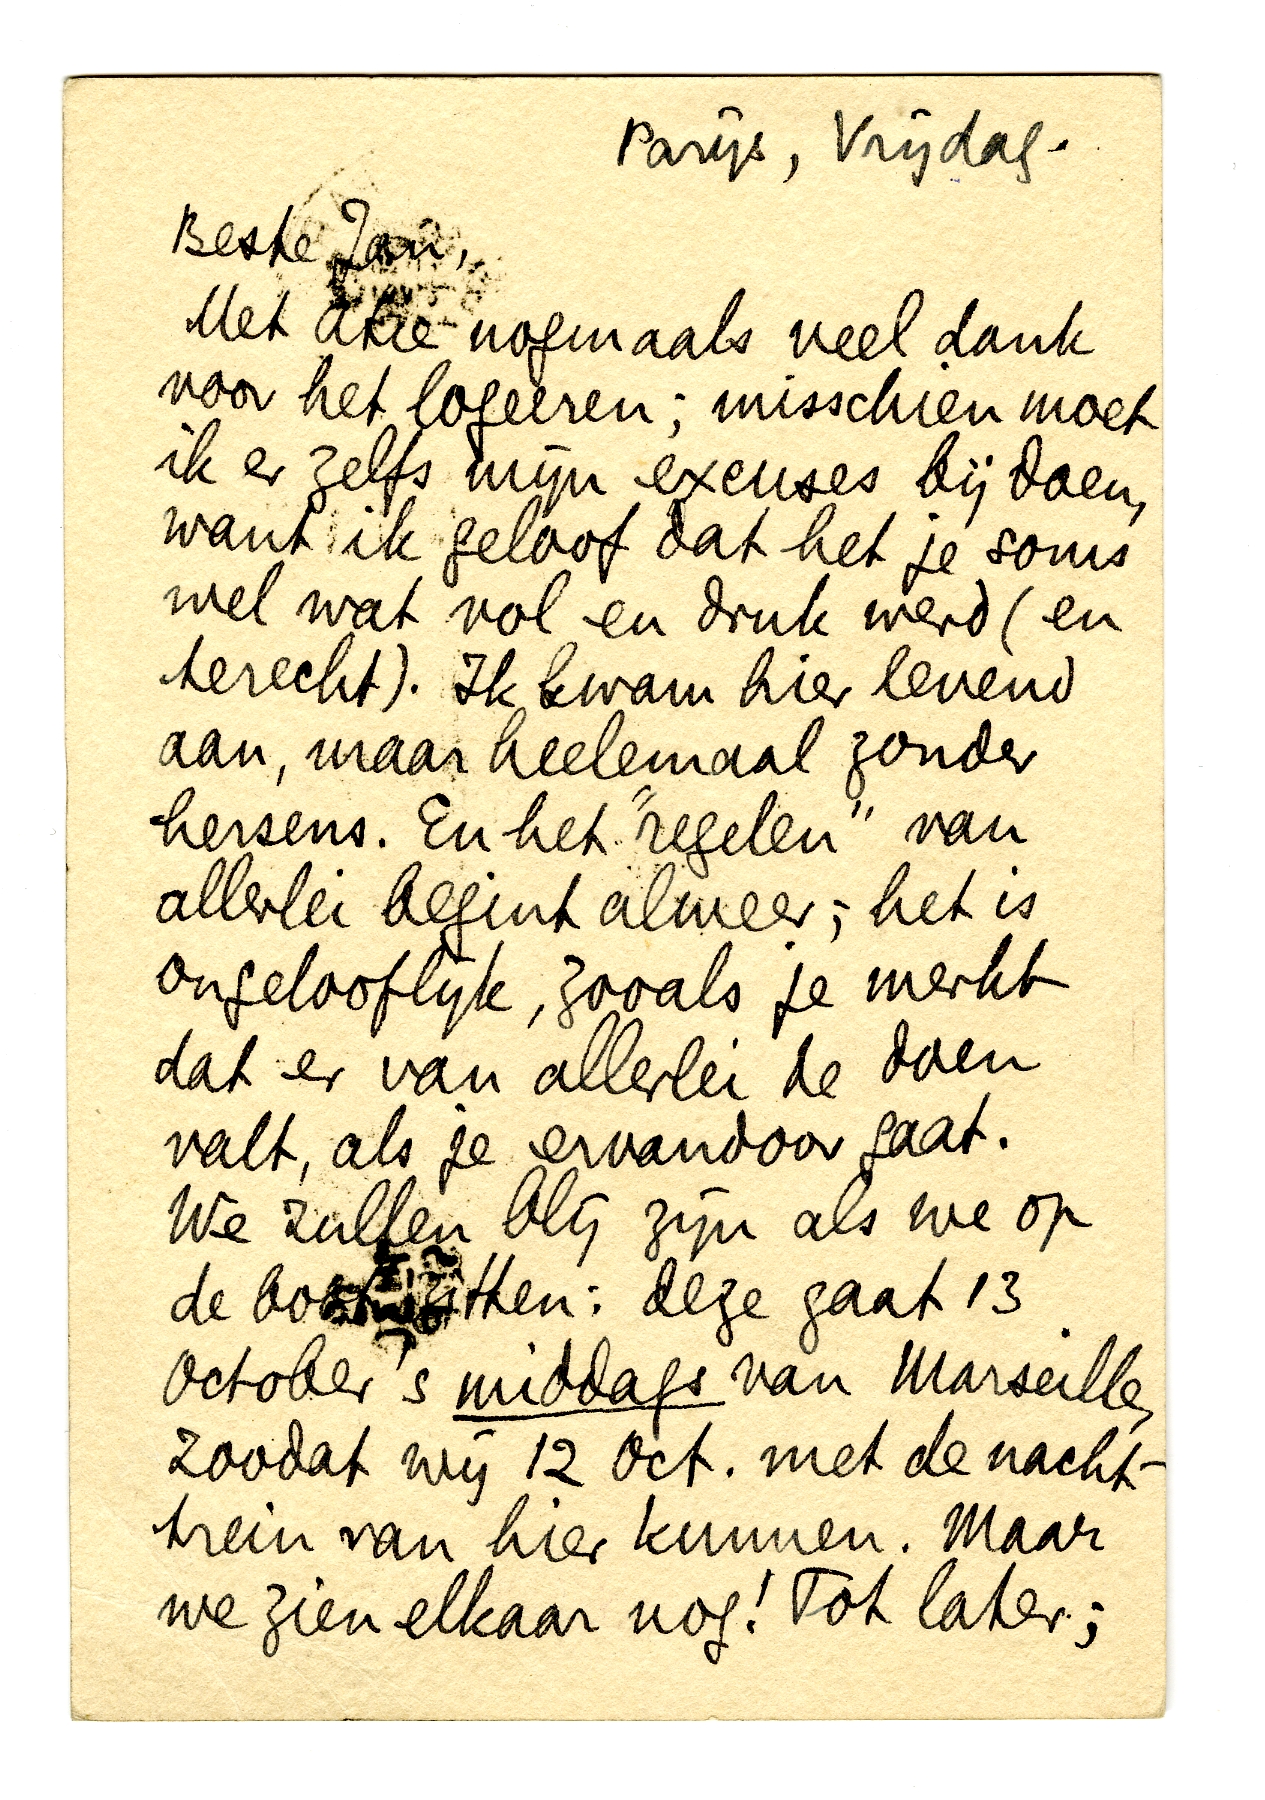 Parijs, Vrijdag.
Beste Jan,
Met dit nogmaals veel dank
voor het logeeren; misschien moet
ik er zelfs mijn excuses bij doen,
want ik geloof dat het je soms
wel wat vol en druk werd (en
terecht). Ik kwam hier levend
aan, maar heelemaal zonder
hersens. En het "regelen" van
allerlei begint alweer; het is
ongelooflijk, zooals je merkt
dat er van allerlei te doen
valt, als je ervandoor gaat.
We zullen blij zijn als we op
de boot zitten: deze gaat 13
October 's middags van Marseille,
zoodat wij 12 Oct. met de nacht-
trein van hier kunnen. Maar
we zien elkaar nog! Tot later;